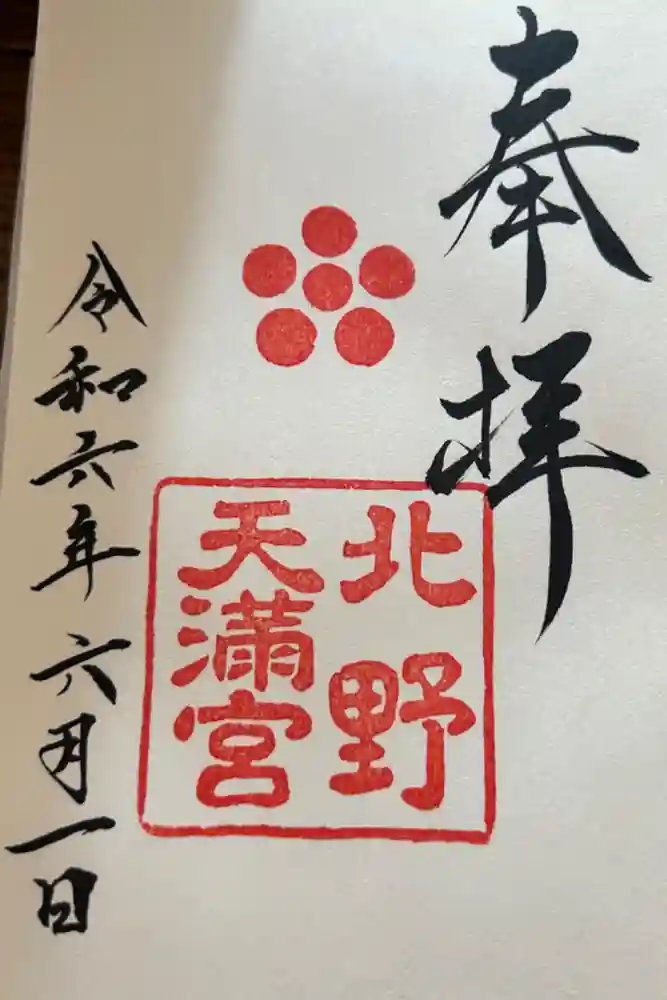 奉拝
北野
天満宮
令和六年六月一日